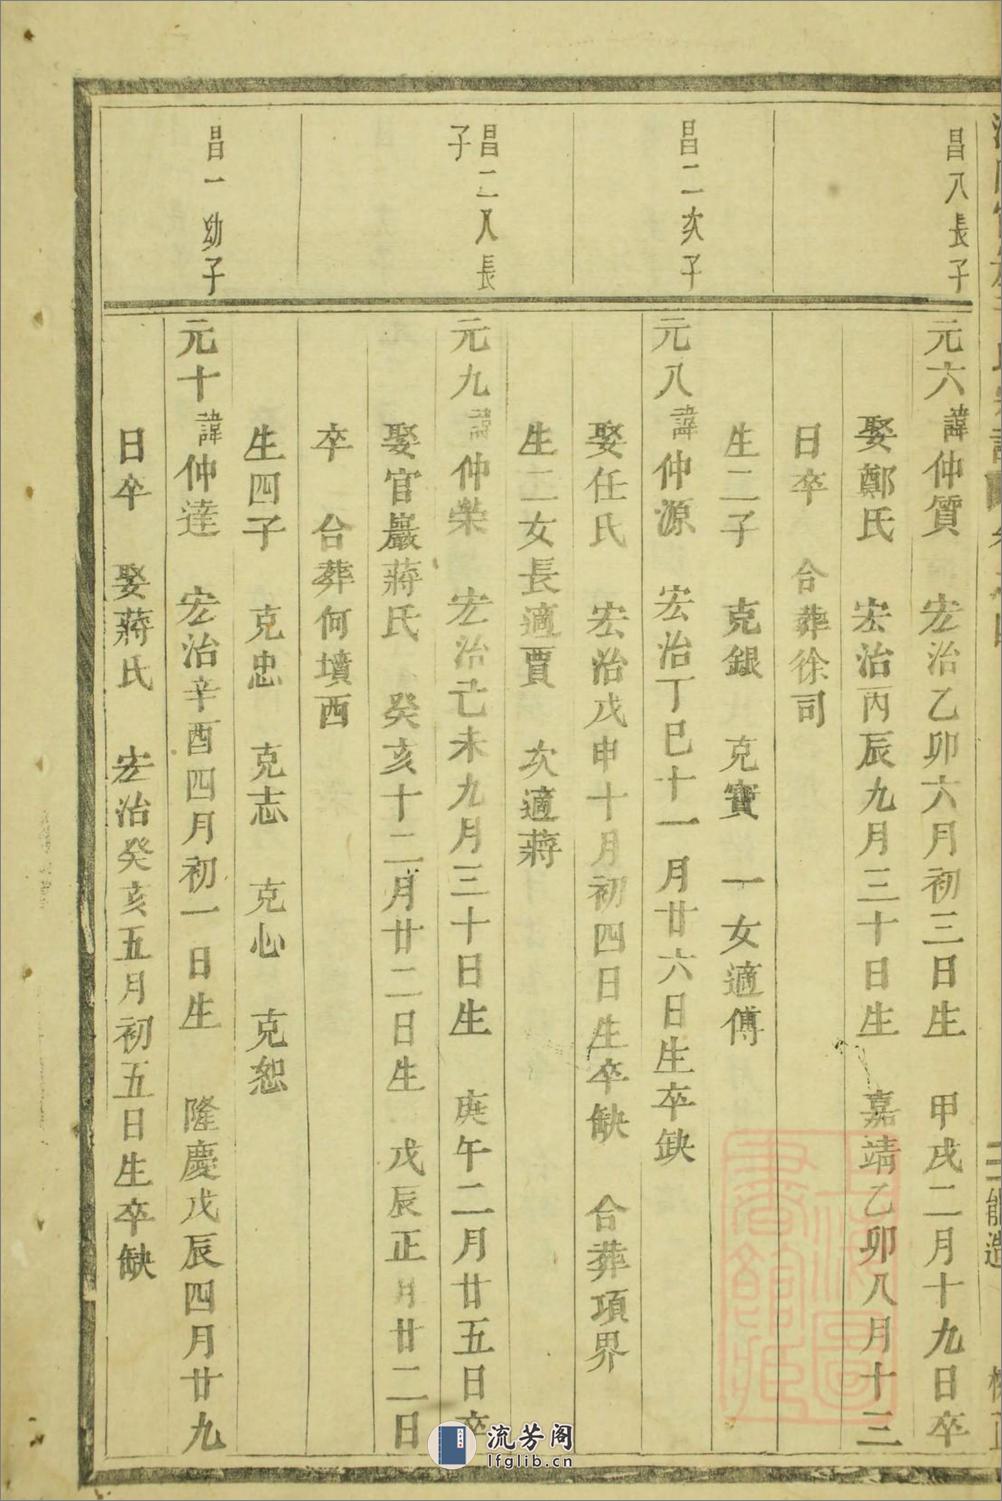 昌八長子
元六諱仲質 宏治乙卯六月初三日生 甲戌二月十九日卒
娶鄭氏 宏治丙辰九月三十日生 嘉靖乙卯八月十三
日卒 合葬徐司
生二子 克銀 克寶 一女適傅
昌二次子
元八諱仲源 宏治丁巳十一月廿六日生卒缺
娶任氏 宏治戊申十月初四日生卒缺 合葬項界
生二女長適賈 次適蔣
昌二八長
子
元九諱仲榮 宏治己未九月三十日生 庚午二月廿五日卒
娶官巖蔣氏 癸亥十二月廿二日生 戊辰正月廿二日
卒 合葬何墳西
生四子 克忠 克志 克心 克恕
昌一幼子
元十諱仲達 宏治辛酉四月初一日生 隆慶戊辰四月廿九
日卒 娶蔣氏 宏治癸亥五月初五日生卒缺
流芳阁
lfglib.cn